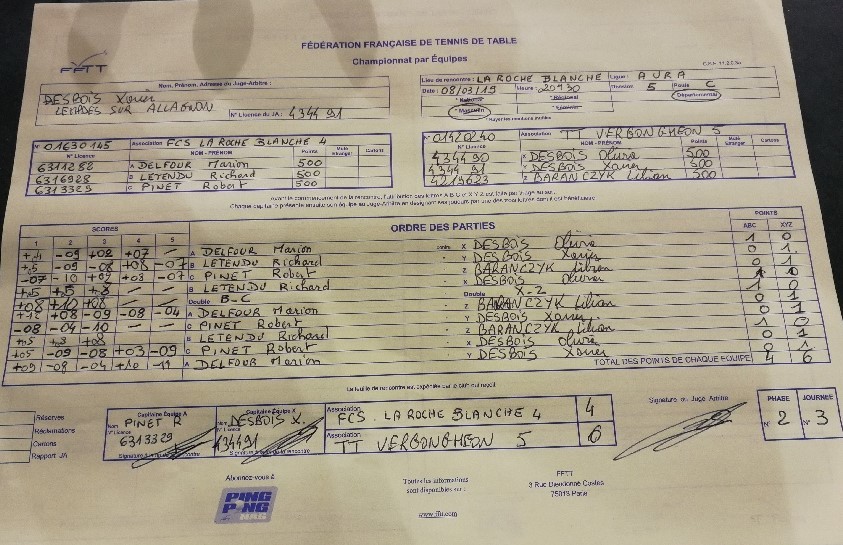 FÉDÉRATION FRANÇAISE DE TENNIS DE TABLE
Championnat par Équipes
FFTT
Nom, Prénom, Adresse du Juge-Arbitre :
DESBOIS Xavier
LEMPDES SUR ALLAGNON
N° Licence du JA : 434491
Lieu de rencontre : LA ROCHE BLANCHE Ligue : AURA
Date : 08/03/19 Heure : 20H30 Division 5 Poule C
National Régional Départemental
Masculin
N° 01630145 Association FCS LA ROCHE BLANCHE 4
N° Licence NOM - PRÉNOM Points Muté Etranger Cartons
6311288 A DELFOUR Marion 500
6316928 B LETENDU Richard 500
6313329 C PINET Robert 500
N° 01420240 Association TT VERGONGHEON 5
N° Licence NOM - PRÉNOM Points Muté Etranger Cartons
434490 X DESBOIS Olivia 500
434491 Y DESBOIS Xavier 500
4219623 Z BARANCZYK Lilian 500
SCORES ORDRE DES PARTIES POINTS
1 2 3 4 5 ABC XYZ
-09 +08 +07 A DELFOUR Marion contre X DESBOIS Olivia 1 0
+5 -09 -08 +08 -07 B LETENDU Richard Y DESBOIS Xavier 0 1
-07 -10 +09 +03 -07 C PINET Robert Z BARANCZYK Lilian 0 1
+5 +5 +8 B LETENDU Richard X DESBOIS Olivia 0
+08 +10 +08 Double B-C Double X-Z 1 0
+08 -09 -08 -04 A DELFOUR Marion Z BARANCZYK Lilian 0 1
-08 -04 -10 C PINET Robert Y DESBOIS Xavier 0 1
+05 +08 B LETENDU Richard Z BARANCZYK Lilian 1 0
+05 -09 -08 +03 -09 C PINET Robert X DESBOIS Olivia 0 1
+09 -08 -04 +10 -11 A DELFOUR Marion Y DESBOIS Xavier 0 1
TOTAL DES POINTS DE CHAQUE ÉQUIPE 4 6
La feuille de rencontre est expédiée par le club qui reçoit
Réserves
Réclamations
Cartons
Rapport JA
Capitaine Équipe A
Nom PINET R
N° Licence
6313329
Nom DESBOIS X.
N° Licence
434491
Association
FCS LA ROCHE BLANCHE 4 4
Association
TT VERGONGHEON 5 6
Signature du Juge Arbitre
PHASE JOURNÉE
N° 2 N° 3
Abonnez-vous à
PING PONG MAG
Toutes les informations
sont disponibles sur :
www.fftt.com
FFTT
3 Rue Dieudonné Costes
75013 Paris